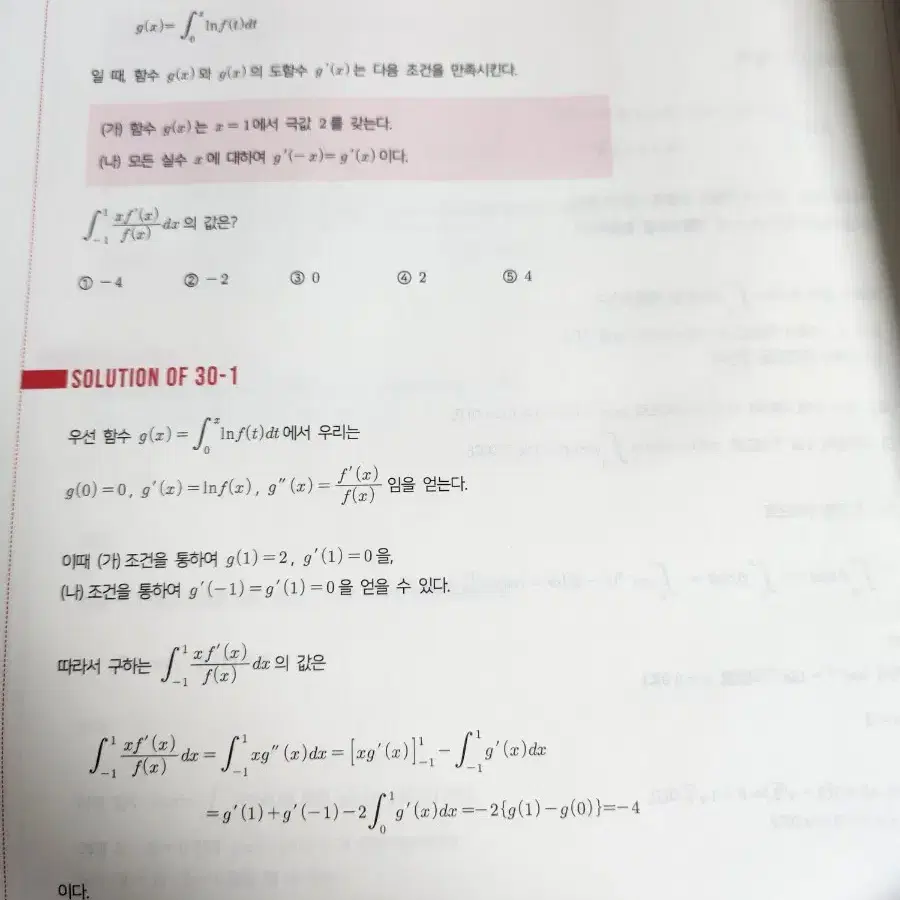 g(x)=∫₀ˣ ln f(t)dt
일 때, 함수 g(x)와 g(x)의 도함수 g′(x)는 다음 조건을 만족시킨다.
(가) 함수 g(x)는 x=1에서 극값 2를 갖는다.
(나) 모든 실수 x에 대하여 g′(-x)=g′(x)이다.
∫₋₁¹ xf′(x)/f(x) dx의 값은?
① -4 ② -2 ③ 0 ④ 2 ⑤ 4
SOLUTION OF 30-1
우선 함수 g(x)=∫₀ˣ ln f(t)dt에서 우리는
g(0)=0, g′(x)=ln f(x), g″(x)=f′(x)/f(x) 임을 얻는다.
이때 (가) 조건을 통하여 g(1)=2, g′(1)=0을,
(나) 조건을 통하여 g′(-1)=g′(1)=0을 얻을 수 있다.
따라서 구하는 ∫₋₁¹ xf′(x)/f(x) dx의 값은
∫₋₁¹ xf′(x)/f(x) dx=∫₋₁¹ xg″(x)dx=[xg′(x)]₋₁¹-∫₋₁¹ g′(x)dx
=g′(1)+g′(-1)-2∫₀¹ g′(x)dx=-2{g(1)-g(0)}=-4
이다.